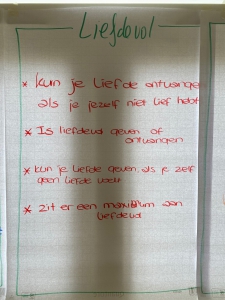 Liefdevol
* Kun je liefde ontvangen
als je jezelf niet lief hebt
* Is liefdevol geven of
ontvangen
* Kun je liefde geven, als je zelf
geen liefde voelt
* Zit er een maximum aan
liefdevol